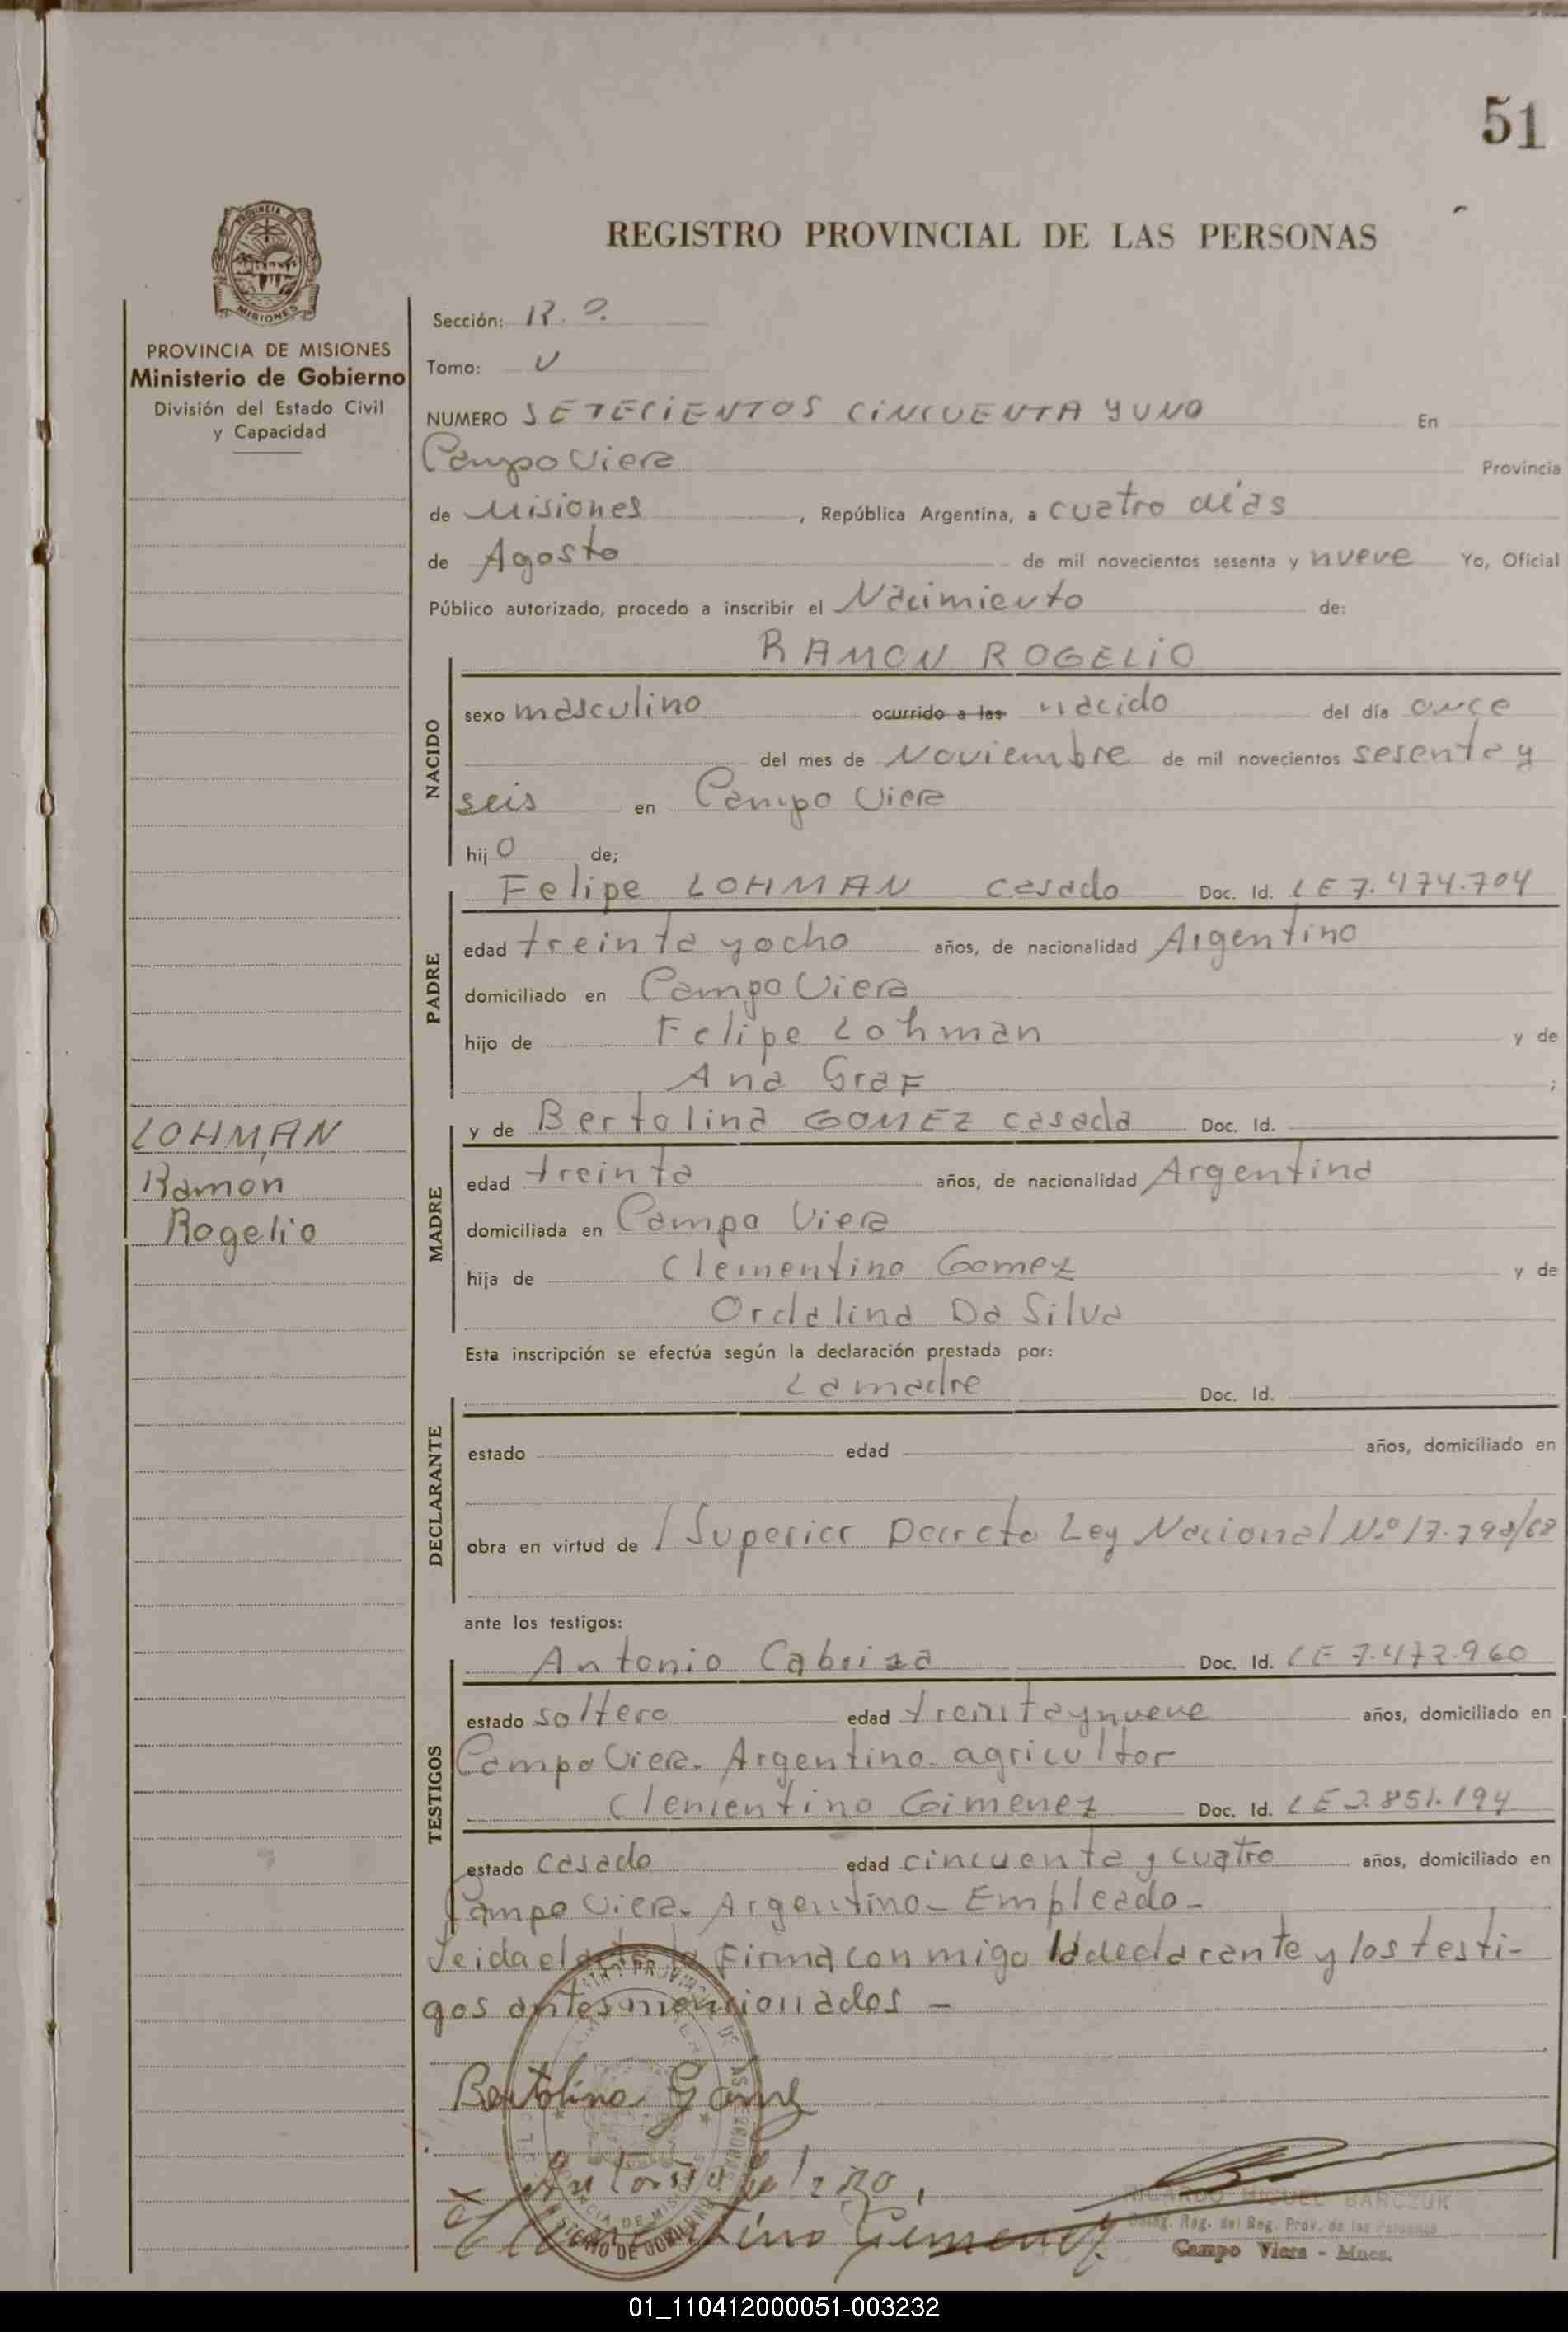 51
REGISTRO PROVINCIAL DE LAS PERSONAS
PROVINCIA DE MISIONES
Ministerio de Gobierno
División del Estado Civil
y Capacidad
LOHMAN
Ramon
Rogelio
Sección:
Tomo: V
NUMERO SETECIENTOS CINCUENTA Y UNO En
Campo Viera Provincia
de Misiones, República Argentina, a cuatro días
de Agosto de mil novecientos sesenta y nueve Yo, Oficial
Público autorizado, procedo a inscribir el Nacimiento de:
RAMON ROGELIO
NACIDO
sexo masculino ocurrido a las nacido del día once
del mes de Noviembre de mil novecientos sesenta y
seis en Campo Viera
hijo de;
PADRE
Felipe LOHMAN casado Doc. Id. LE 7.474.704
edad treinta y ocho años, de nacionalidad Argentino
domiciliado en Campo Viera
hijo de Felipe Lohman y de
Ana Graf ;
MADRE
y de Bertolina GOMEZ casada Doc. Id.
edad treinta años, de nacionalidad Argentina
domiciliada en Campo Viera
hija de Clementino Gomez y de
Ordalina Da Silva
Esta inscripción se efectúa según la declaración prestada por:
DECLARANTE
La madre Doc. Id.
estado edad años, domiciliado en
obra en virtud de Superior Decreto Ley Nacional N.º
ante los testigos:
TESTIGOS
Antonio Doc. Id. LE 7.472.960
estado soltero edad treinta y nueve años, domiciliado en
Campo Viera. Argentino. agricultor
Clementino Gimenez Doc. Id. LE 2.851.194
estado casado edad cincuenta y cuatro años, domiciliado en
Campo Viera. Argentino - Empleado -
Leida el acta la firma con migo la declarante y los testi-
gos antes mencionados -
Bertolina Gomez
Clementino Gimenez
RICARDO MIGUEL BARCZUK
Campo Viera - Mnes.
01_110412000051-003232